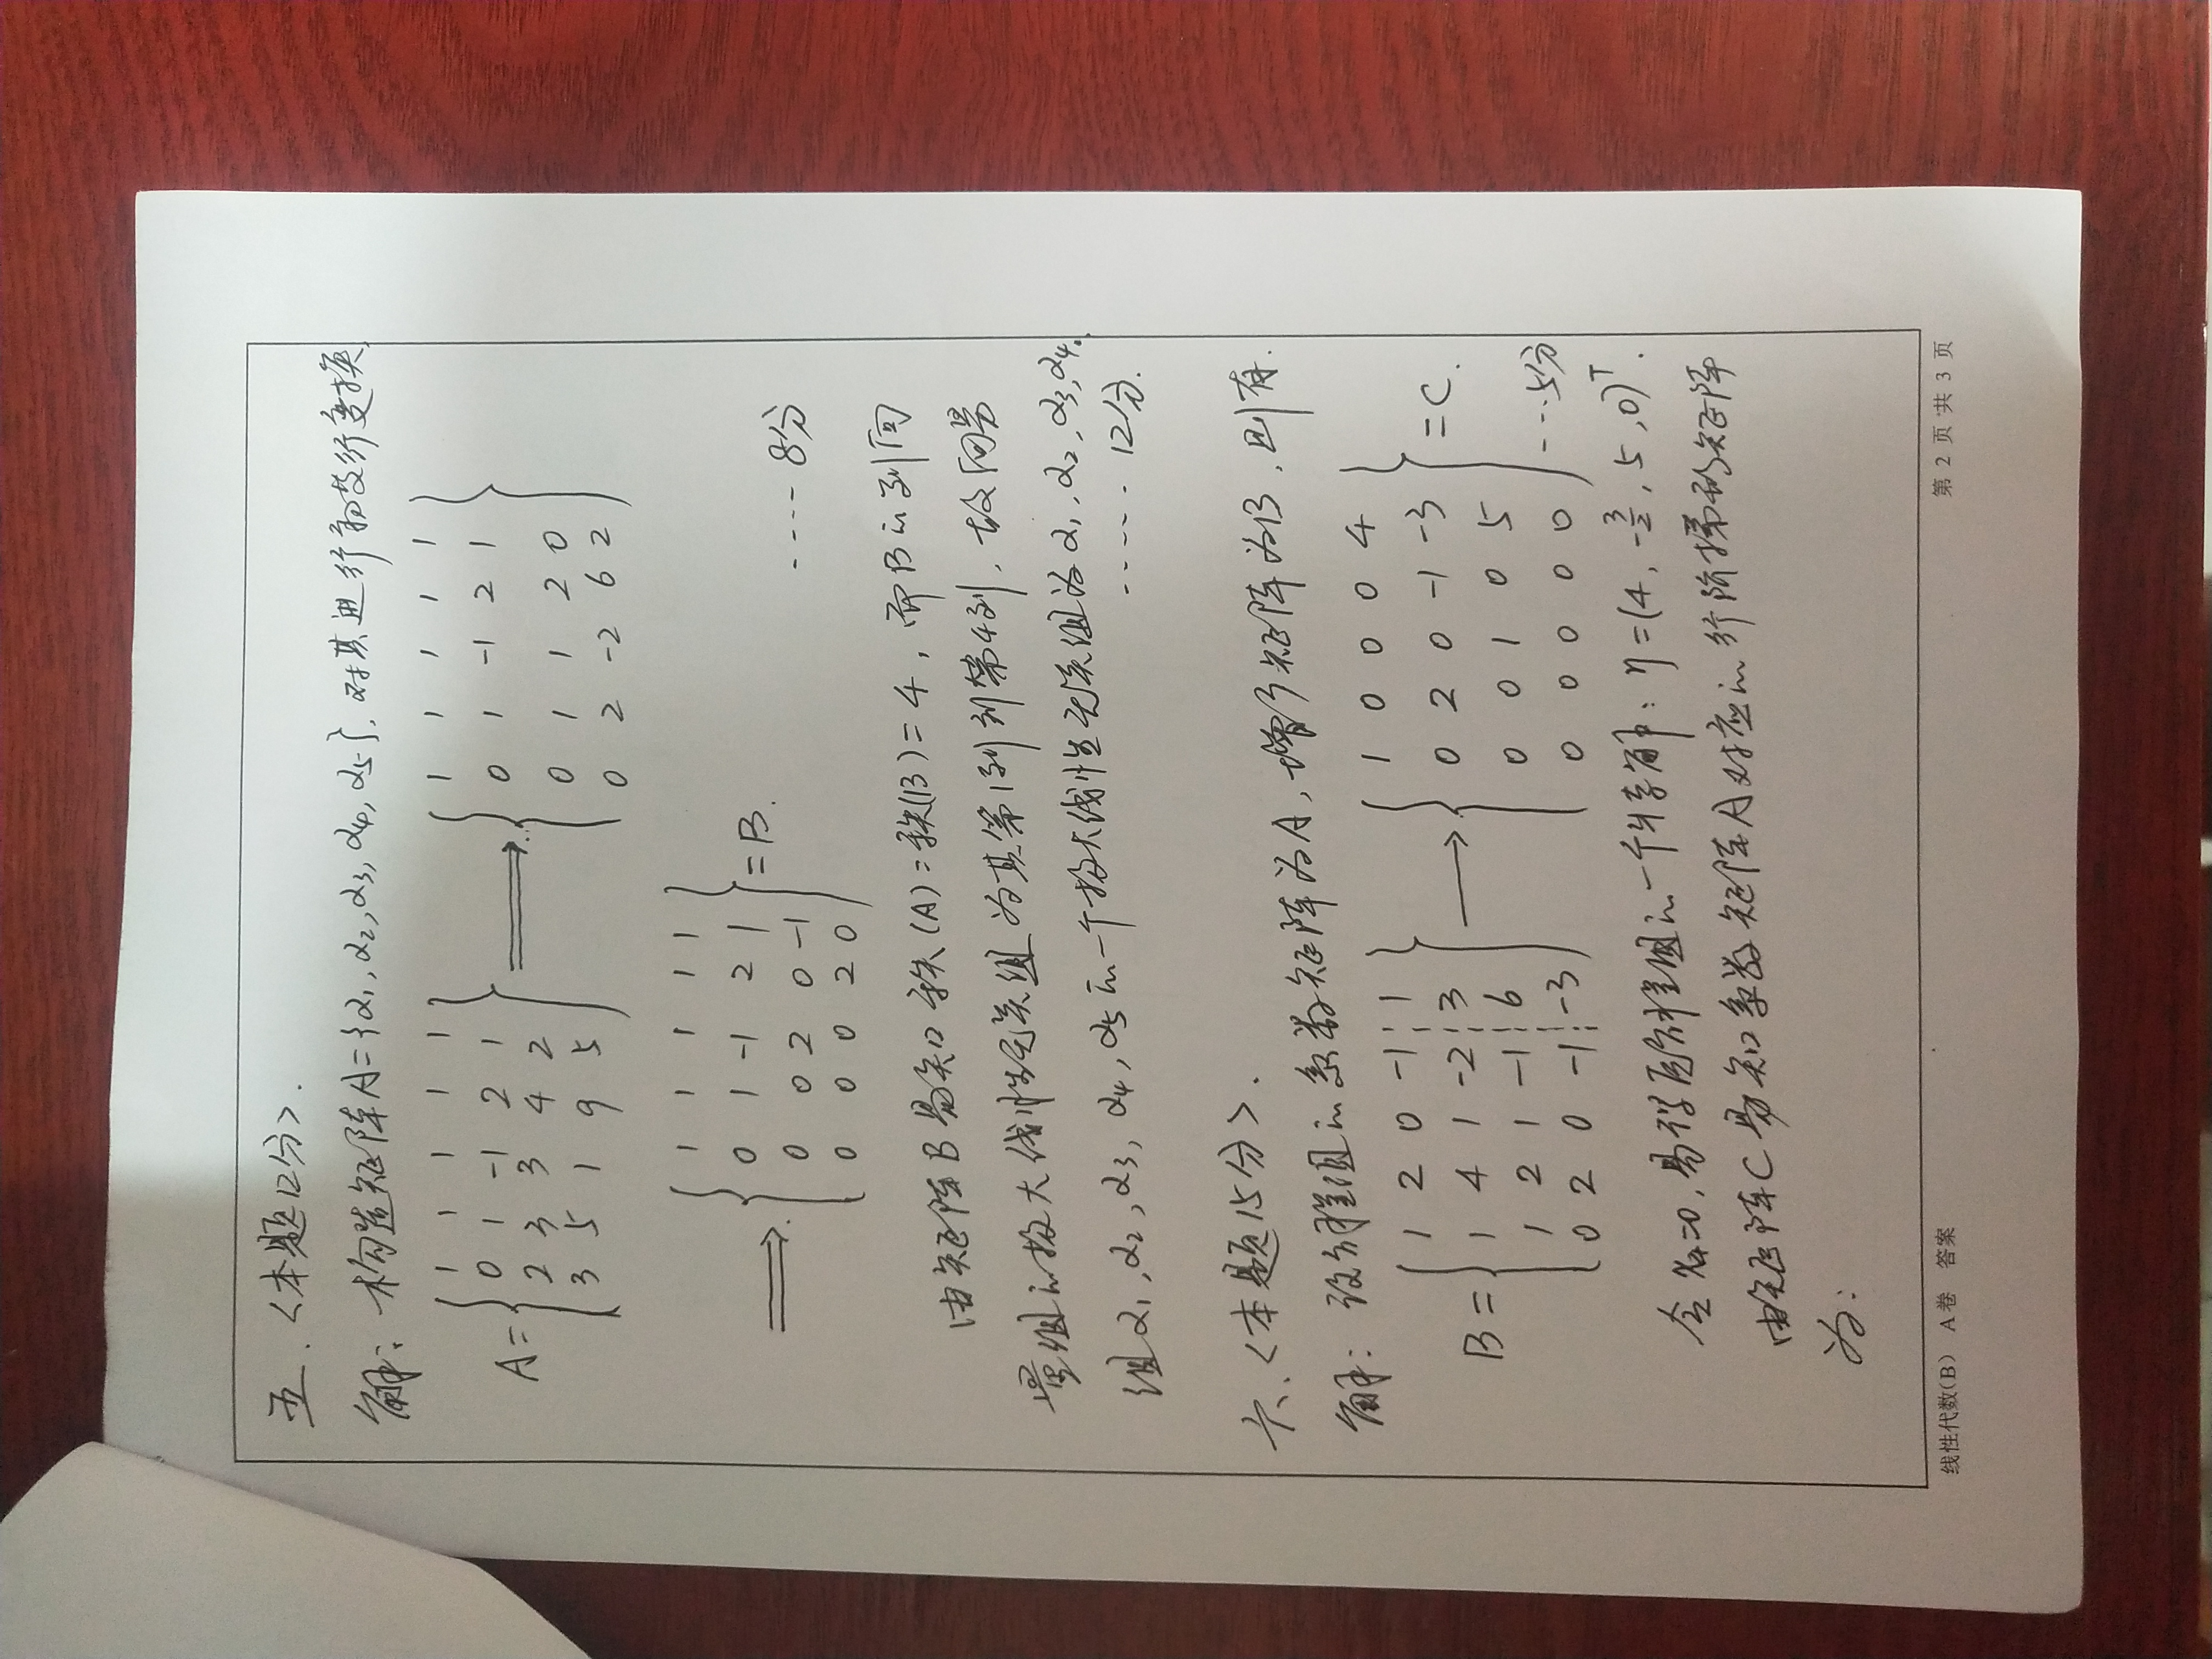 五.<本题12分>.
解: 构造矩阵A={α₁,α₂,α₃,α₄,α₅}, 对其进行初等行变换,
A= { 1 1 1 1 1 / 0 1 -1 2 1 / 2 3 3 4 2 / 3 5 1 9 5 } ⟹ { 1 1 1 1 1 / 0 1 -1 2 1 / 0 1 1 2 0 / 0 2 -2 6 2 }
⟹ { 1 1 1 1 1 / 0 1 -1 2 1 / 0 0 2 0 -1 / 0 0 0 2 0 } =B. ---- 8分
由矩阵B易知 秩(A)=秩(B)=4, 而B的列向
量组的极大线性无关组为其第1列到第4列, 故向量
组α₁,α₂,α₃,α₄,α₅的一个极大线性无关组为α₁,α₂,α₃,α₄.
----- 12分.
六.<本题15分>.
解: 设方程组的系数矩阵为A, 增广矩阵为B, 则有.
B= { 1 2 0 -1 1 / 1 4 1 -2 3 / 1 2 1 -1 6 / 0 2 0 -1 -3 } → { 1 0 0 0 4 / 0 2 0 -1 -3 / 0 0 1 0 5 / 0 0 0 0 0 } =C. ---5分
令x₄=0, 易得原方程组的一个特解: η=(4, -3/2, 5, 0)ᵀ.
由矩阵C易知系数矩阵A对应的行阶梯形矩阵
为:
线性代数(B) A卷 答案
第 2 页 共 3 页